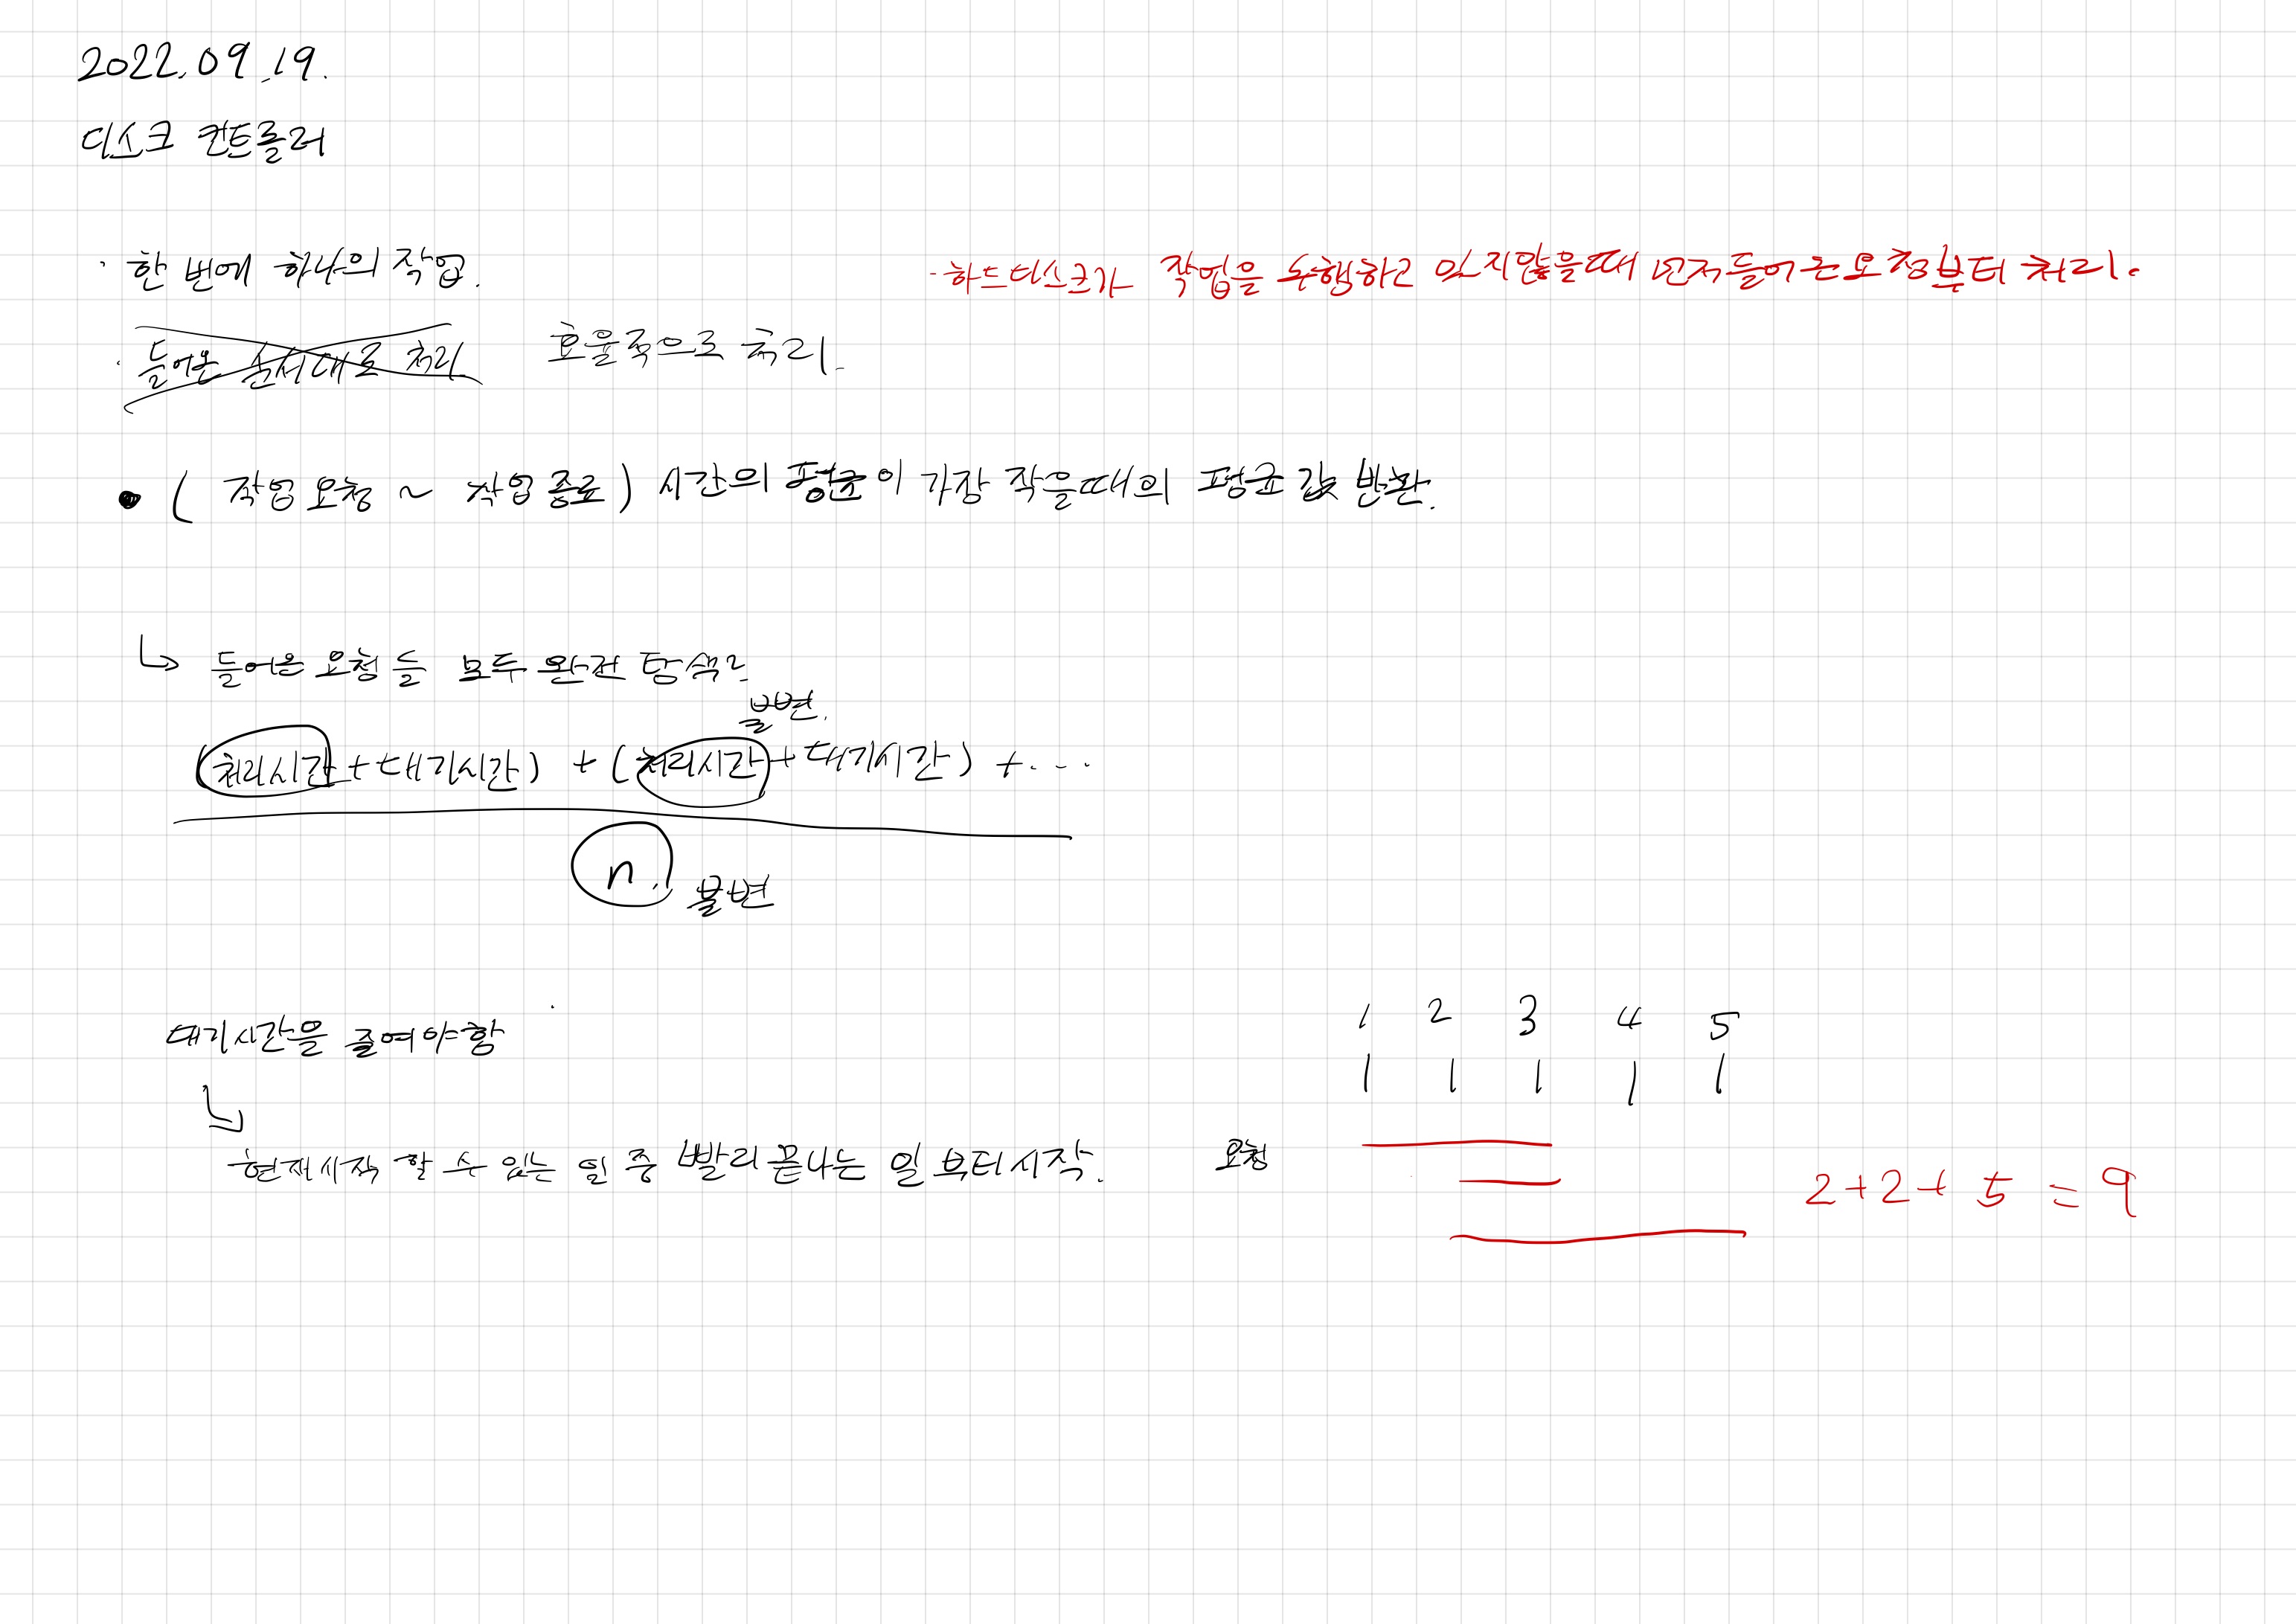 2022.09.19.
디스크 컨트롤러
· 한 번에 하나의 작업.
- 하드디스크가 작업을 수행하고 있지않을때 먼저들어온요청부터 처리.
· 들어온 순서대로 처리 효율적으로 처리.
• ( 작업 요청 ~ 작업 종료 ) 시간의 평균이 가장 작을때의 평균 값 반환.
↳ 들어온 요청 들 모두 완전 탐색?
불변.
(처리시간+대기시간) + (처리시간+대기시간) + ...
n. 불변
대기시간을 줄여야함
↳ 현재시작 할 수 있는 일 중 빨리끝나는 일 부터시작.
1 2 3 4 5
요청
2+2+5=9